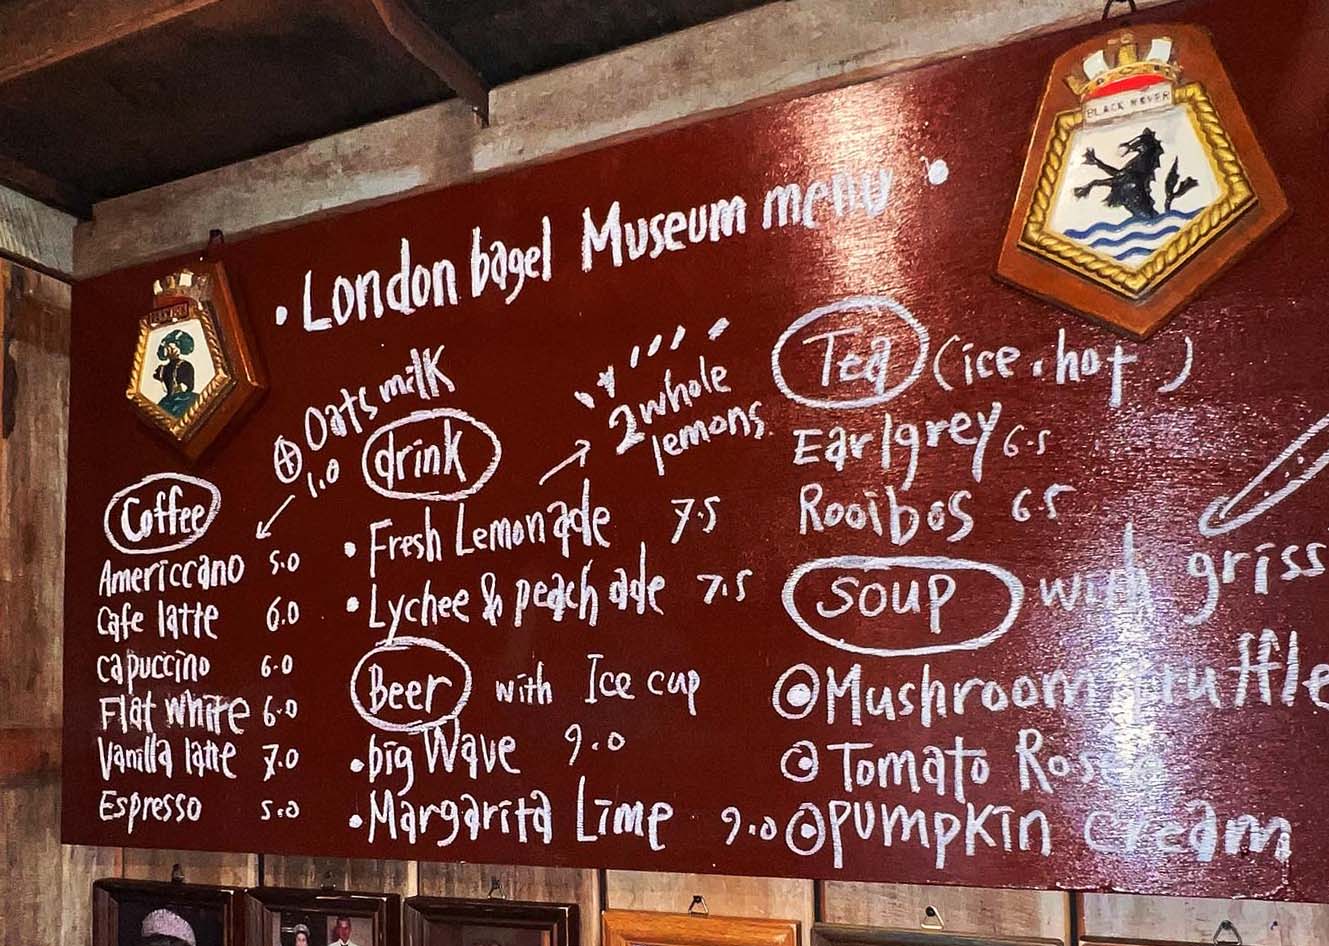 BLACK
London bagel Museum menu
Oats milk
1.0
Coffee
Americcano 5.0
Cafe latte 6.0
capuccino 6.0
Flat white 6.0
Vanilla latte 7.0
Espresso 5.0
drink
2 whole
lemons.
Fresh Lemonade 7.5
Lychee & peach ade 7.5
Beer with Ice cup
big Wave 9.0
Margarita Lime 9.0
Tea (ice. hot)
Earlgrey 6.5
Rooibos 6.5
Soup with griss
Mushroom truffle
Tomato
Pumpkin cream